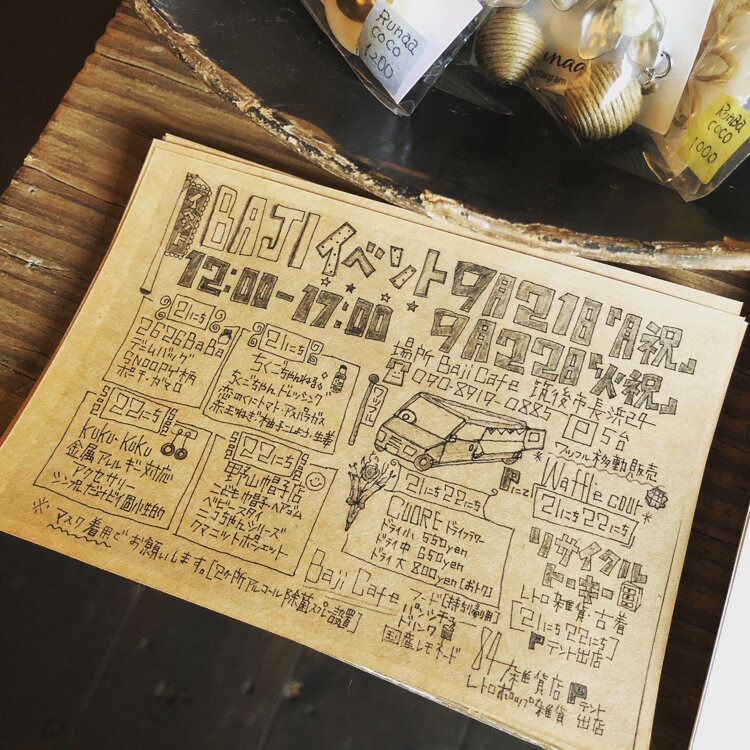 Runaa
coco
1200
unaa
stagram
Runaa
coco
1000
BAJIイベント9月21日「月祝」
12:00-17:00 9月22日「火祝」
場所 Baji Cafe 筑後市長浜24
☎090-8917-0885 P5台
21にち
2626BaBa
デニムバッグ
SNOOPY柄
ポーチ・がま口
21にち
ちくごちゃんねる
ちくごちゃんドレッシング
恋のくにトマト・アスパラガス
赤玉ねぎ 柚子こしょう・生姜
ワッフル
ワッフル移動販売
Pにて
Waffle cour
21にち22にち
22にち
KUKU-KUKU
金属アレルギー対応
アクセサリー
シンプルだけど個性的
22にち
野山帽子店
こども帽子・ヘアゴム
ベビースタイ
ニコちゃんシリーズ
クマニットポシェット
21にち22にち
CUORE ドライフラワー
ドライ小 550yen
ドライ中 650yen
ドライ大 800yen[おトク]
リサイクル
トーキー
レトロ雑貨・古着
[21にち22にち]
Pテント出店
※マスク着用でお願いします。[2ヶ所アルコール除菌スプレー設置]
Baji Cafe フード[持ち帰り用]
パンシチュー
ドリンク
国産レモネード
84雑貨店
Pテント
レトロポップ雑貨 出店